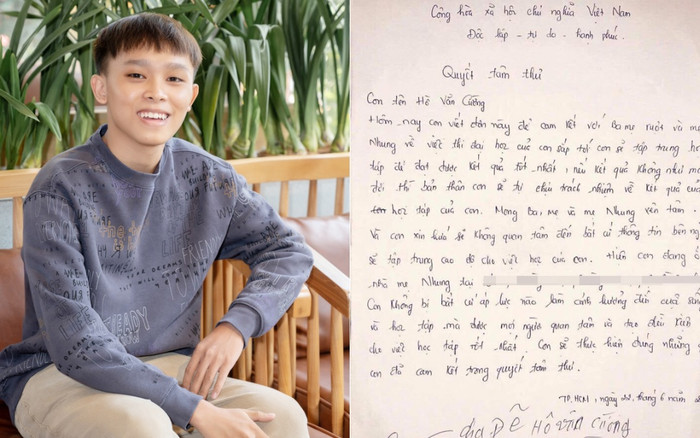 Cộng hòa xã hội chủ nghĩa Việt Nam
Độc lập - tự do - hạnh phúc.
Quyết tâm thư
Con tên Hồ Văn Cường
Hôm nay con viết đơn này để cam kết với Ba mẹ ruột và mẹ
Nhung về việc thi đại học của con sắp tới con sẽ tập trung học
tập để đạt được kết quả tốt nhất, nếu kết quả không như mong
đợi thì bản thân con sẽ tự chịu trách nhiệm về kết quả của
học tập của con. Mong Ba, mẹ và mẹ Nhung yên tâm
Và con xin hứa sẽ không quan tâm đến bất cứ thông tin bên ng
sẽ tập trung cao độ cho việc học của con. Hiện con đang ở
nhà mẹ Nhung tại
Con không bị bất cứ áp lực nào làm ảnh hưởng đến cuộc sống
và học tập mà được mọi người quan tâm và tạo điều kiện
cho việc học tập tốt nhất. Con sẽ thực hiện đúng những g
con đã cam kết trong quyết tâm thư.
TP.HCM, ngày 22 tháng 6 năm 2
Hồ Văn Cường
LIFE
READY